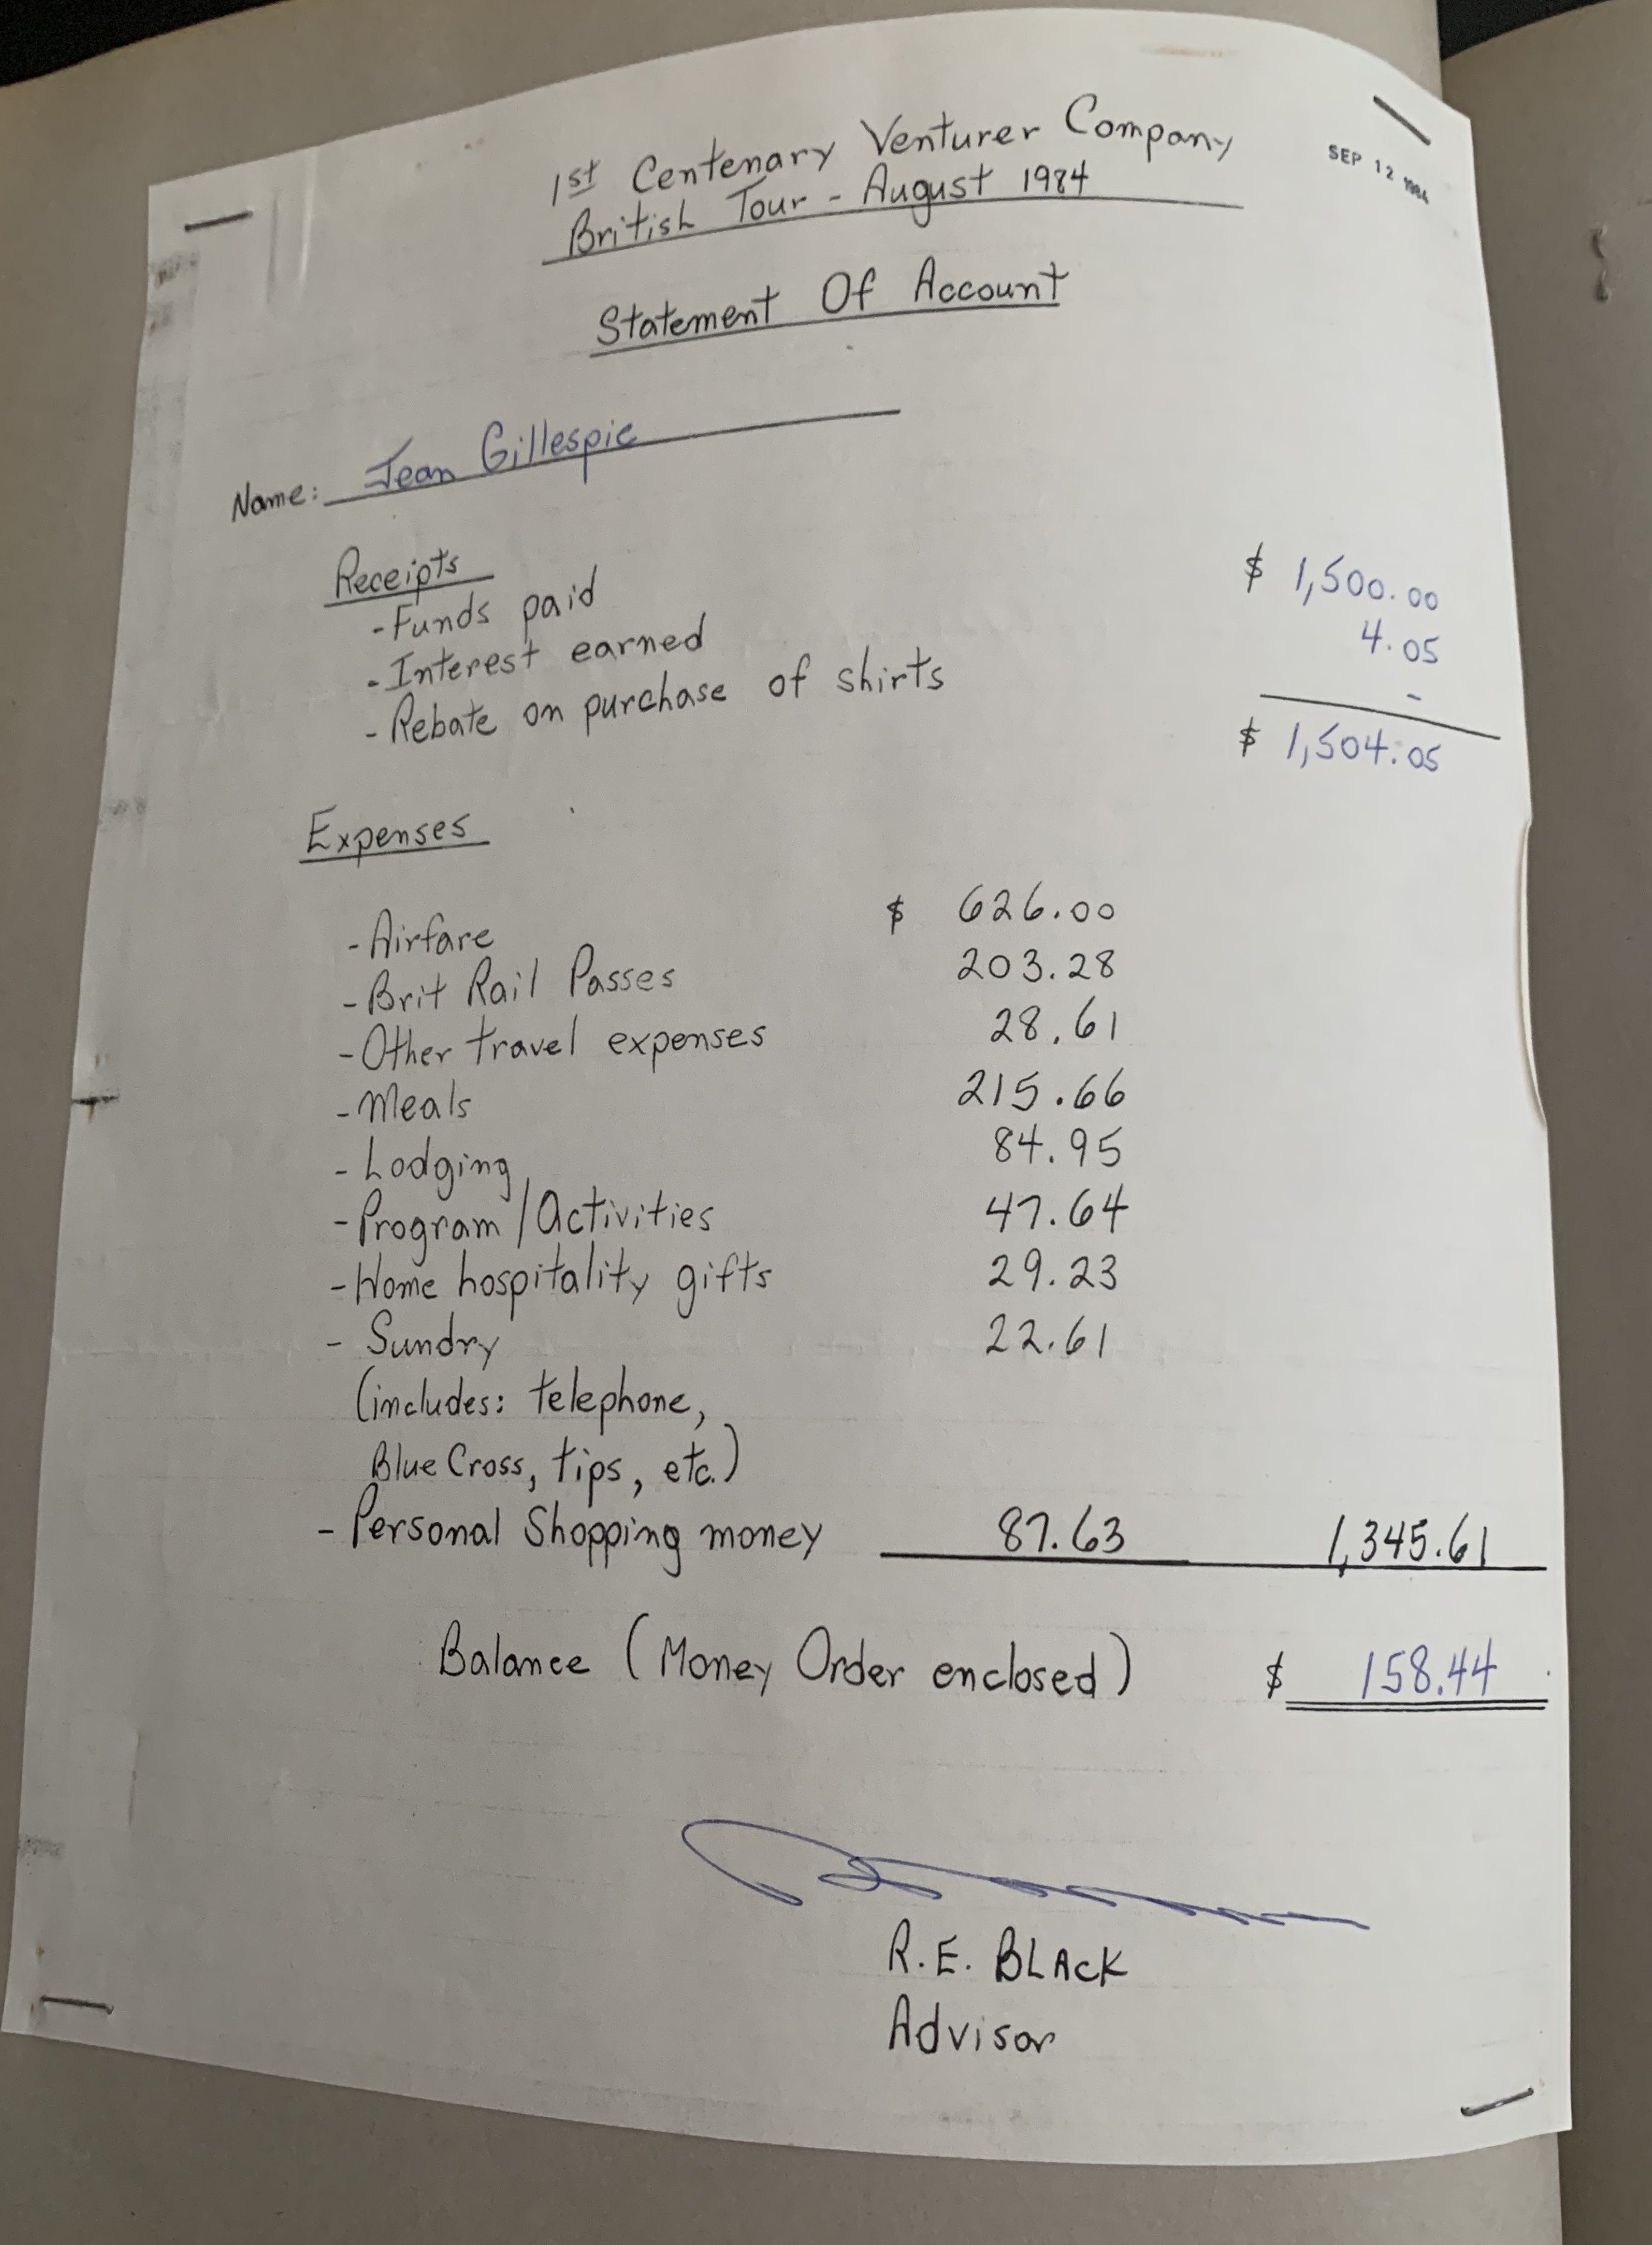 1st Centenary Venturer Company
British Tour - August 1984
SEP 12 1984
Statement Of Account
Name: Jean Gillespie
Receipts
- Funds paid $ 1,500.00
- Interest earned 4.05
- Rebate on purchase of shirts -
$ 1,504.05
Expenses
- Airfare $ 626.00
- Brit Rail Passes 203.28
- Other travel expenses 28.61
- Meals 215.66
- Lodging 84.95
- Program/Activities 47.64
- Home hospitality gifts 29.23
- Sundry 22.61
(includes: telephone,
Blue Cross, tips, etc.)
- Personal Shopping money 87.63 1,345.61
Balance (Money Order enclosed) $ 158.44
R.E. BLACK
Advisor